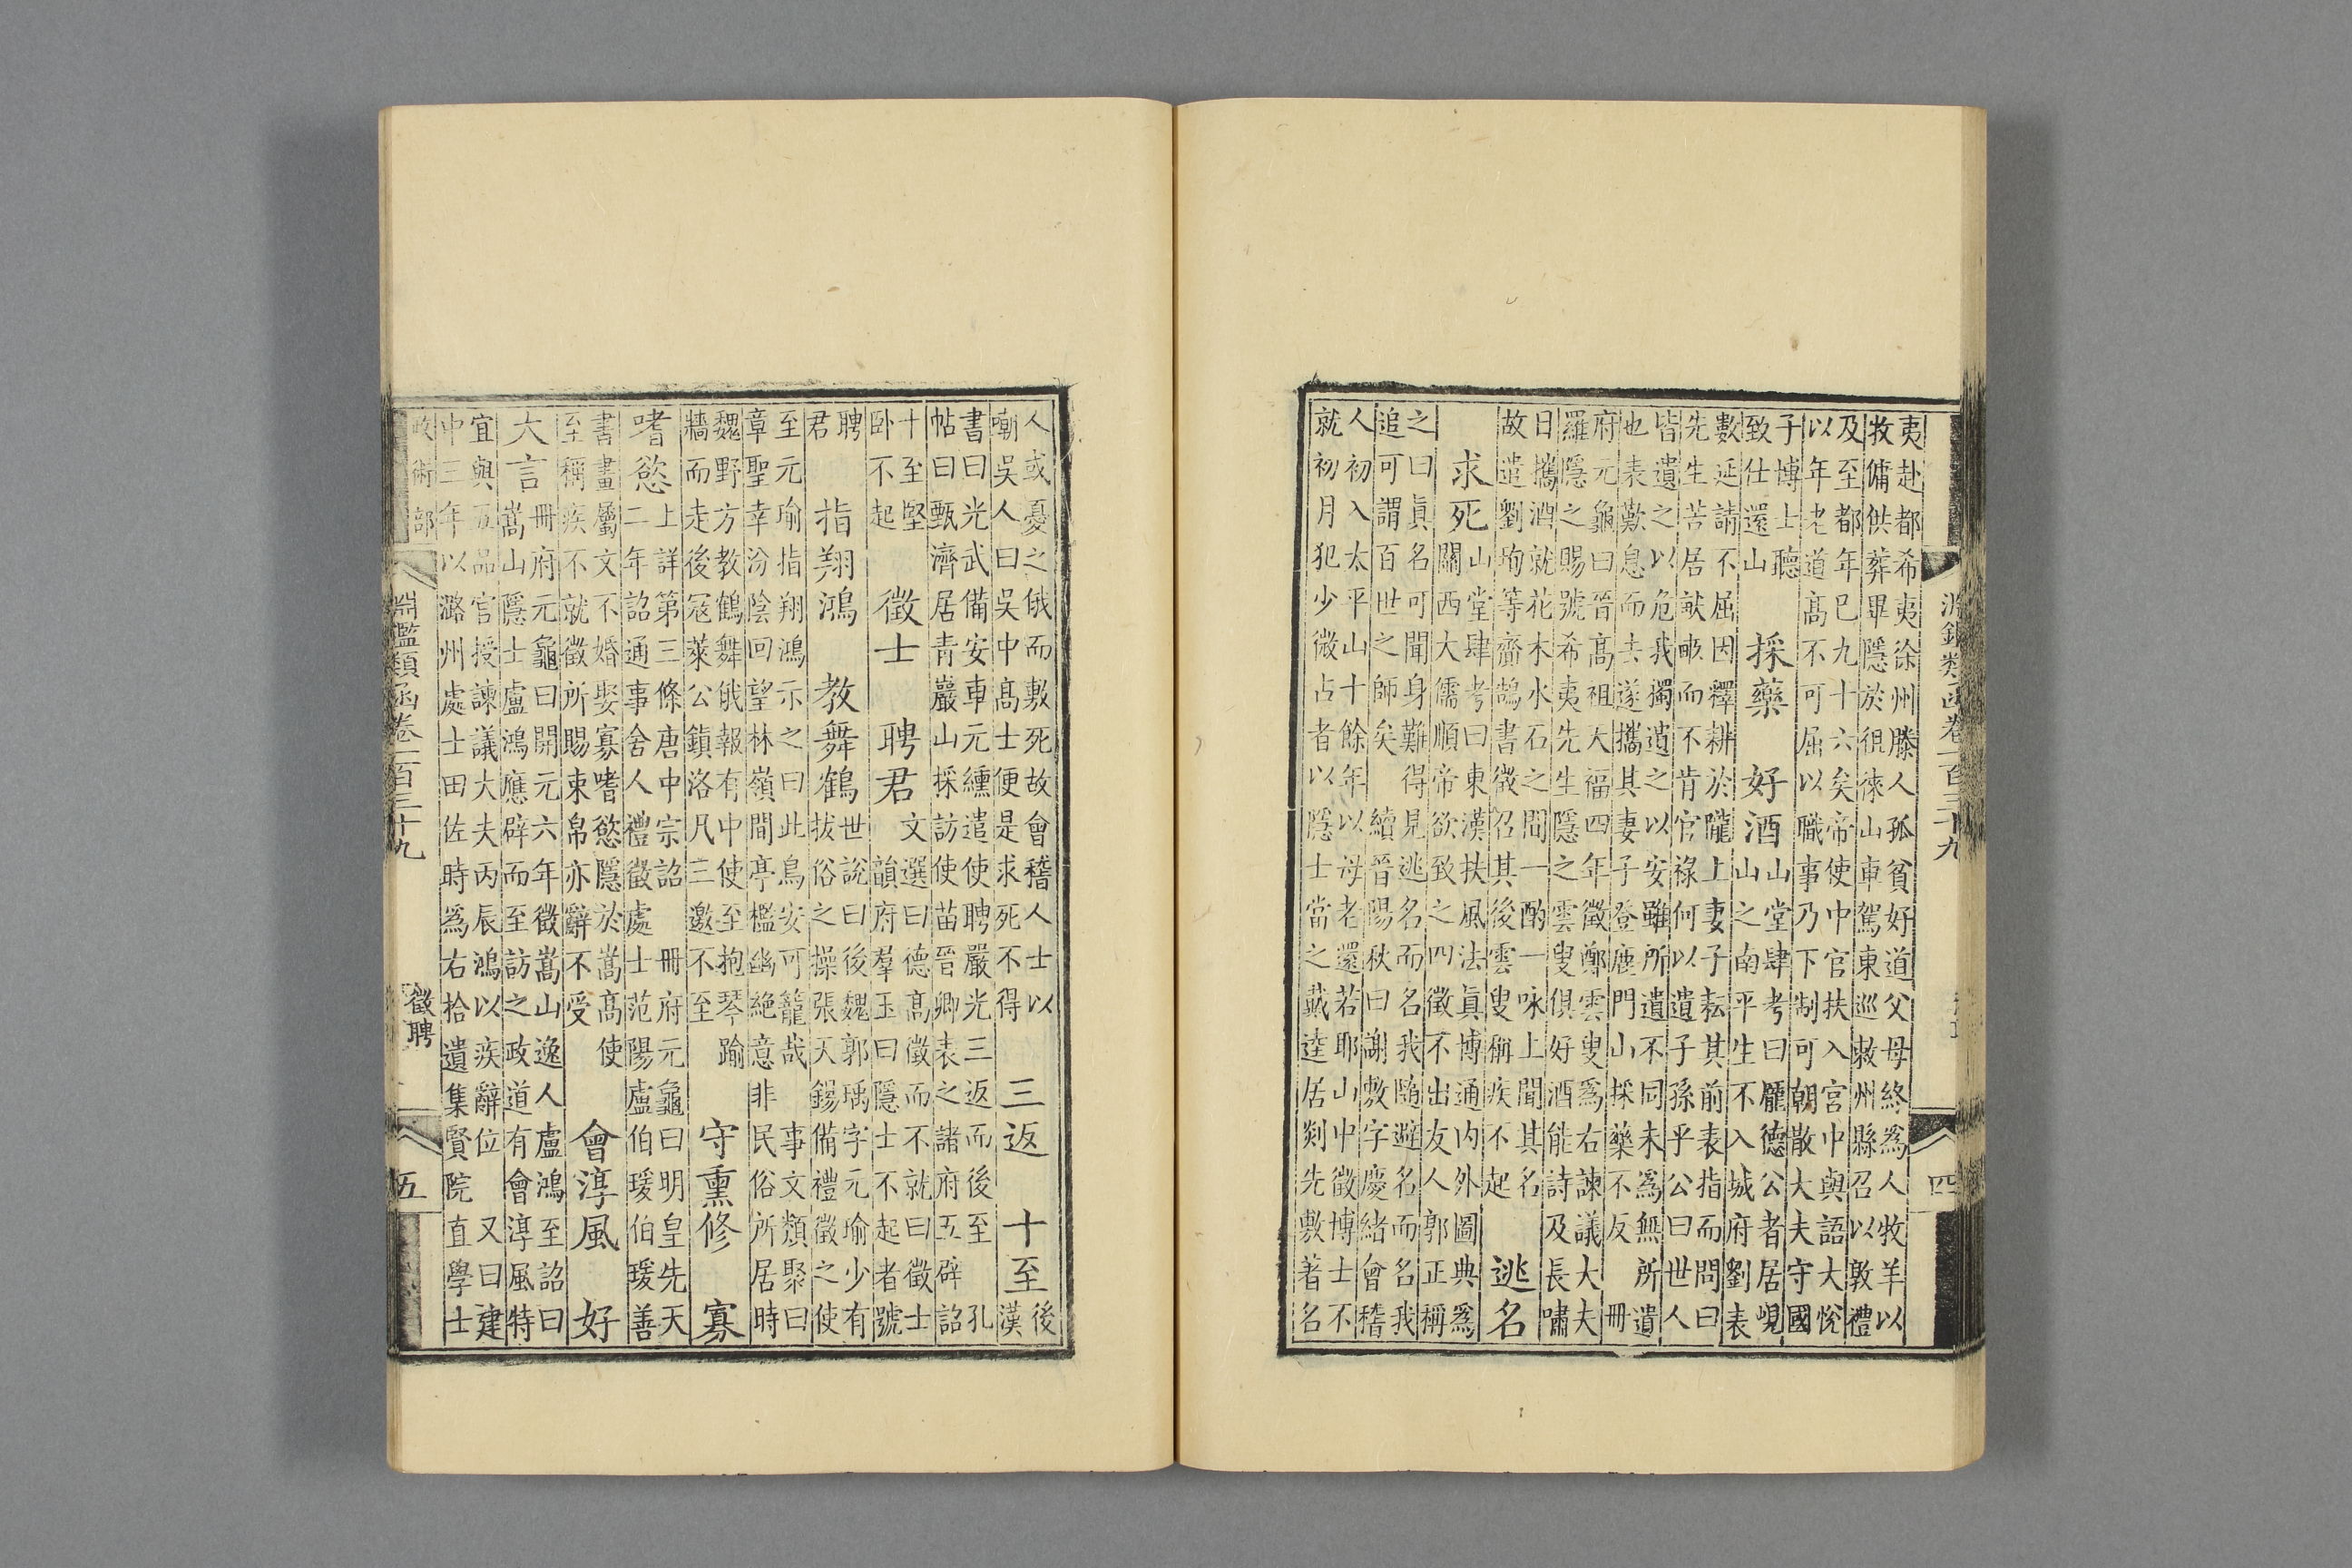 淵鑑類函卷一百三十九
四
夷赴都希夷徐州滕人孤貧好道父母終爲人牧羊以
牧傭供葬畢隱於徂徠山車駕東巡敕州縣召以敦禮
及至都年巳九十六矣帝使中官扶入宮中與語大悅
以年老道高不可屈以職事乃下制可朝散大夫守國
子博士聽
致仕還山
採藥 好酒
山堂肆考曰龎德公者居峴
山之南平生不入城府劉表
數延請不屈因釋耕於隴上妻子耘其前表指而問曰
先生苦居畎畝而不肯官祿何以遺子孫乎公曰世人
皆遺之以危我獨遺之以安雖所遺不同未爲無所遺
也表歎息而去遂攜其妻子登鹿門山採藥不反 冊
府元龜曰晉高祖天福四年徵鄭雲叟爲右諫議大夫
羅隱之賜號希夷先生隱之雲叟俱好酒能詩及長嘯
日攜酒就花木水石之間一酌一咏上聞其名
故遣劉珣等齎鵠書徵召其後雲叟稱疾不起
逃名
求死
山堂肆考曰東漢扶風法眞博通内外圖典爲
關西大儒順帝欲致之四徵不出友人郭正稱
之曰眞名可聞身難得見逃名而名我隨避名而名我
追可謂百世之師矣 續晉陽秋曰謝敷字慶緒會稽
人初入太平山十餘年以母老還若耶山中徵博士不
就初月犯少微占者以隱士當之戴逵居剡先敷著名
人或憂之俄而敷死故會稽人士以
嘲吳人曰吳中高士便是求死不得
三返 十至
後
漢
書曰光武備安車元纁遣使聘嚴光三返而後至 孔
帖曰甄濟居青巖山採訪使苗晉卿表之諸府五辟詔
十至堅
卧不起
徵士 聘君
文選曰德高徵而不就曰徵士
韻府羣玉曰隱士不起者號
聘
君
指翔鴻 教舞鶴
世說曰後魏郭瑀字元瑜少有
拔俗之操張天錫備禮徵之使
至元瑜指翔鴻示之曰此鳥安可籠哉 事文類聚曰
章聖幸汾陰回望林嶺間亭檻幽絶意非民俗所居時
魏野方教鶴舞俄報有中使至抱琴踰
牆而走後寇萊公鎮洛凡三邀不至
守熏修 寡
嗜慾
上詳第三條唐中宗詔 冊府元龜曰明皇先天
二年詔通事舍人禮徵處士范陽盧伯瑗伯瑗善
書畫屬文不婚娶寡嗜慾隱於嵩高使
至稱疾不就徵所賜束帛亦辭不受
會淳風 好
大言
冊府元龜曰開元六年徵嵩山逸人盧鴻至詔曰
嵩山隱士盧鴻應辟而至訪之政道有會淳風特
宜與五品官授諫議大夫丙辰鴻以疾辭位 又曰建
中三年以潞州處士田佐時爲右拾遺集賢院直學士
政術部
淵鑑類函卷一百三十九
徵聘
五